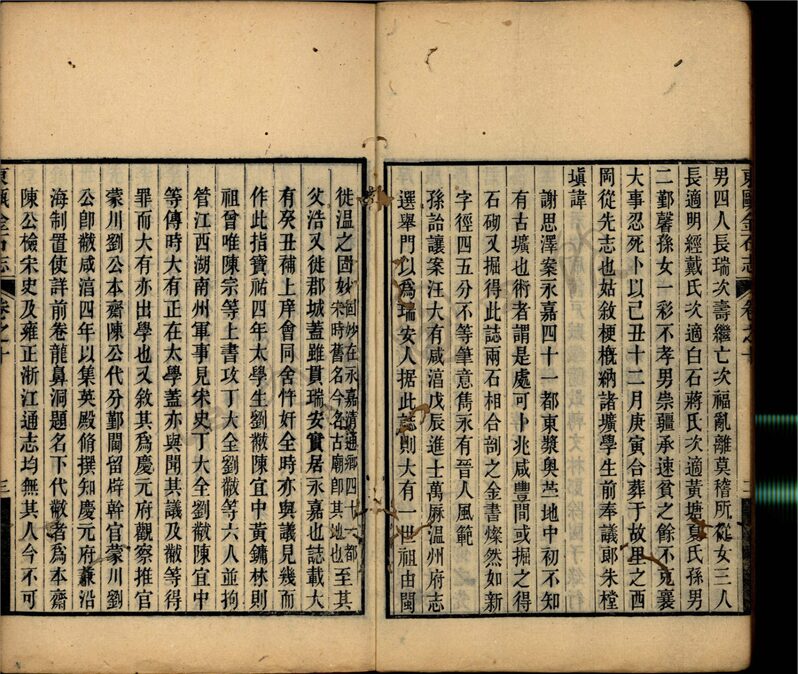 東甌金石志
男四人長瑞次壽繼亡次福亂離莫稽所從女三人
長適明經戴氏次適白石蔣氏次適黃塘夏氏孫男
二鄞馨孫女一彩不孝男崇疆承速貧之餘不克襄
大事忍死卜以己丑十二月庚寅合葬于故里之西
岡從先志也姑敘梗槪納諸壙學生前奉議郞朱樘
塡諱
謝思澤案永嘉四十一都東漿奥苙地中初不知
有古壙也術者謂是處可卜兆咸豐間或掘之得
石砌又掘得此誌兩石相合剖之金書燦然如新
字徑四五分不等筆意雋永有晉人風範
孫詒讓案汪大有咸淳戊辰進士萬厤溫州府志
選舉門以爲瑞安人据此誌則大有一世祖由閩
二
徙温之固妙固妙在永嘉清通鄕四十一都
宋時舊名今名古廟卽其地也至其
父浩又徙郡城蓋雖貫瑞安實居永嘉也誌載大
有癸丑補上庠會同舍忤奸全時亦與議見幾而
作此指寶祐四年太學生劉黻陳宜中黃鏞林則
祖曾唯陳宗等上書攻丁大全劉黻等六人並拘
管江西湖南州軍事見宋史丁大全劉黻陳宜中
等傳時大有正在太學蓋亦與聞其議及黻等得
罪而大有亦出學也又敘其爲慶元府觀察推官
蒙川劉公本齋陳公代分鄞閫留辟幹官蒙川劉
公卽黻咸淳四年以集英殿脩撰知慶元府兼沿
海制置使詳前卷龍鼻洞題名下代黻者爲本齋
陳公檢宋史及雍正浙江通志均無其人今不可
東甌金石志
卷之十
三